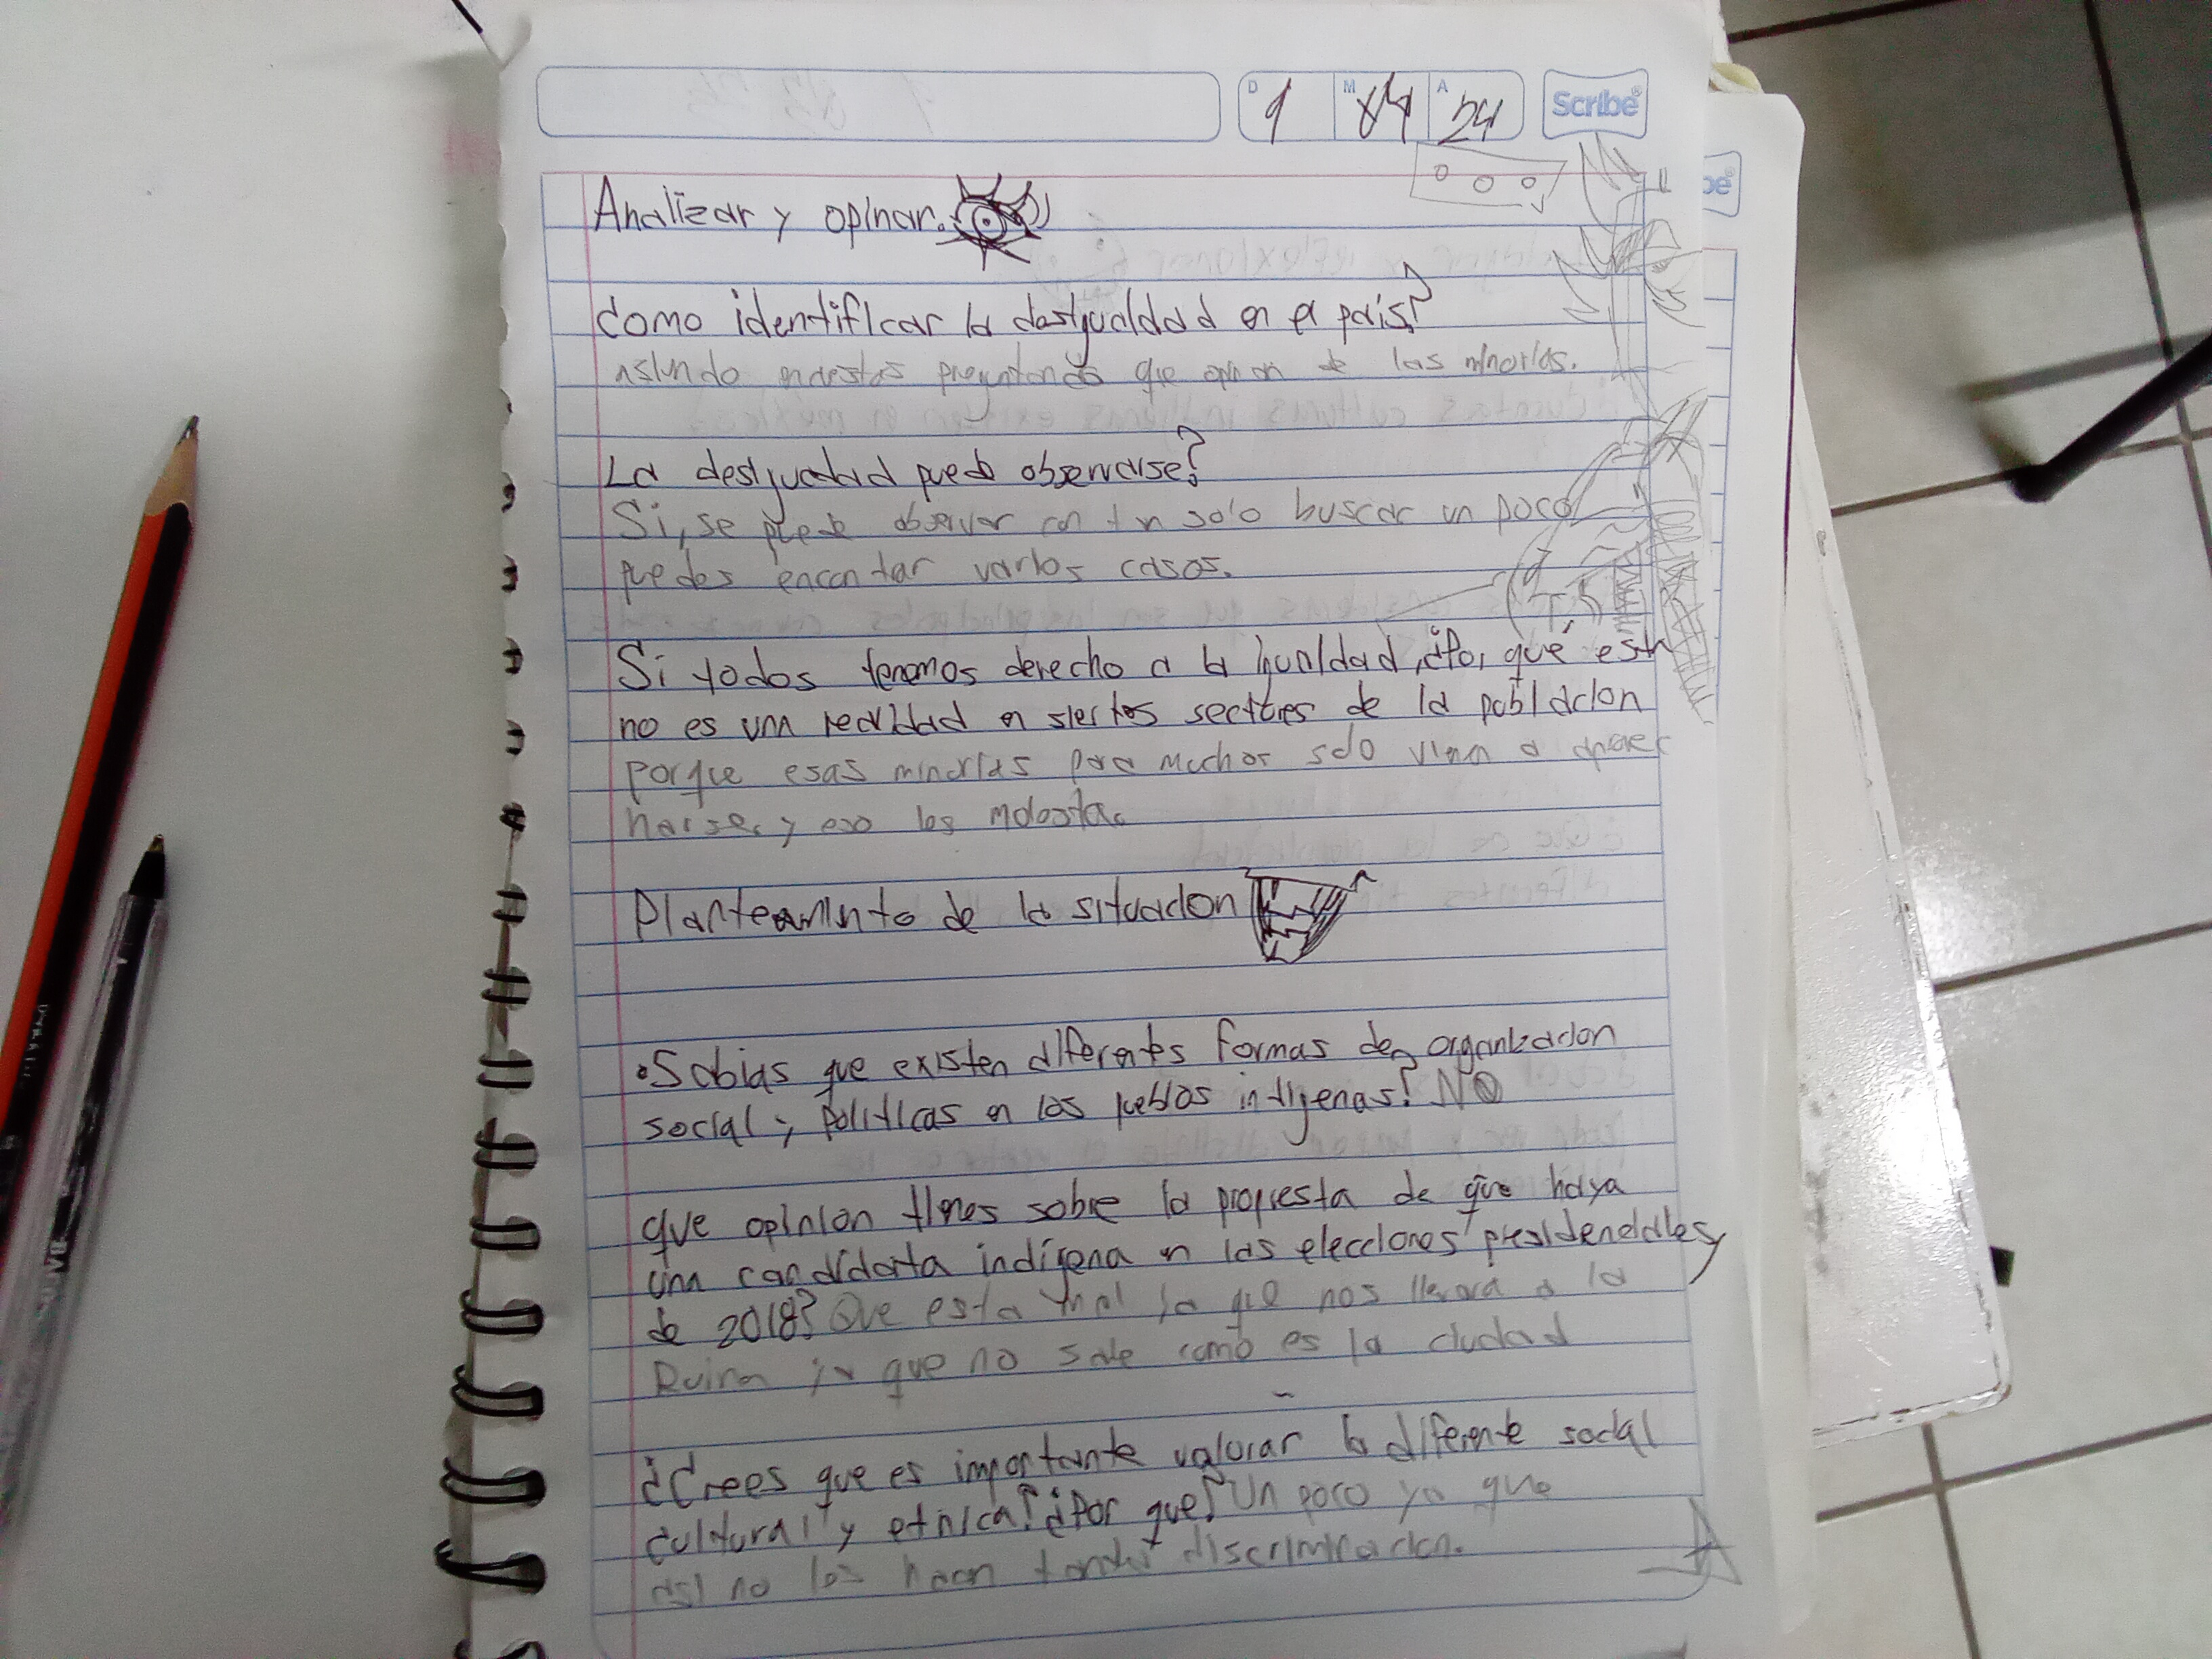 D 9 M 04 A 24 Scribe
Analizar y opinar.
Como identificar la desigualdad en el pais?
encestas preguntando que opinan de las minorias.
La desigualdad puede observarse?
Si, se puede observar con tan solo buscar un poco
puedes encontar varios casos.
Si todos tenemos derecho a la igualdad, ¿Por qué esta
no es una realidad en siertos sectores de la poblacion
porque esas minorias para muchos solo vinen a
y eso los molesta.
Planteaminto de la situacion
•Sabias que existen diferentes formas de organizacion
social y politicas en los pueblos indigenas? NO
que opinion tienes sobre la propuesta de que haya
una candidata indígena en las elecciones presidenciales
de 2018? Que esta mal ya que nos llevara a la
Ruina ya que no sabe como es la ciudad
¿Crees que es importante valorar la diferente social
cultural y etnica? ¿Por que? Un poco ya que
asi no les hacen tanta discriminacion.